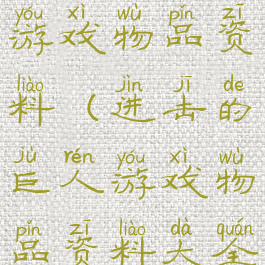 yóu xì wù pǐn zī
游戏物品资
liào jìn jī de
料(进击的
jù rén yóu xì wù
巨人游戏物
pǐn zī liào dà quán
品资料大全